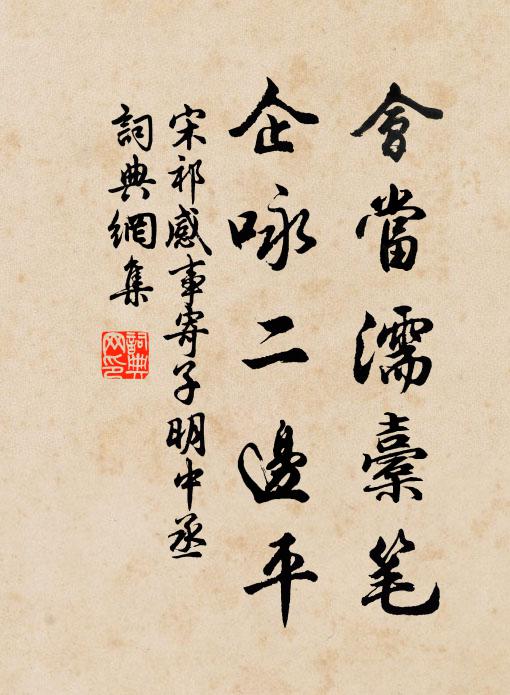 會當濡櫜笔
企咏二邊平
宋祁感事寄子明中丞
詞典網集
詞典网印